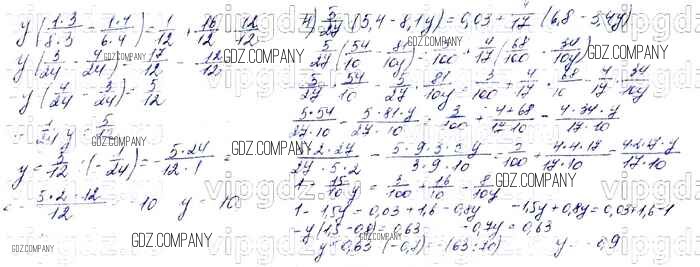 y(1·3/8·3 - 1·4/6·4) = 1/12 · 16/12 12/12
y(3/24 - 4/24) = 17/12 - 12/12
-y(4/24 - 3/24) = 5/12
-1/24 y = 5/12
y = 5/12 : (-1/24) = -5·24/12·1 =
= -5·2·12/12 = -10 y = -10
4) 5/27 (5,4 - 8,1y) = 0,03 + 4/17 (6,8 - 3,4y)
5/27 (54/10 - 81/10 y) = 3/100 + 4/17 (68/10 - 34/10 y)
5/27 · 54/10 - 5/27 · 81/10 y = 3/100 + 4/17 · 68/10 - 4/17 · 34/10 y
5·54/27·10 - 5·81·y/27·10 = 3/100 + 4·68/17·10 - 4·34·y/17·10
5·2·27/27·5·2 - 5·9·3·3y/3·9·10 = 3/100 + 4·4·17/17·10 - 4·2·17·y/17·10
1 - 15/10 y = 3/100 + 16/10 - 8/10 y
1 - 1,5y = 0,03 + 1,6 - 0,8y -1,5y + 0,8y = 0,03 + 1,6 - 1
-y(1,5 - 0,8) = 0,63 -0,7y = 0,63
y = 0,63 : (-0,7) = -(63:70) y = -0,9
GDZ.COMPANY
GDZ.COMPANY
GDZ.COMPANY
GDZ.COMPANY
GDZ.COMPANY
GDZ.COMPANY
GDZ.COMPANY
GDZ.COMPANY
GDZ.COMPANY